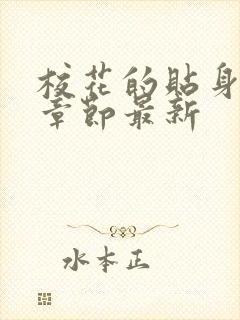 校花的贴身
章节最新
水本正